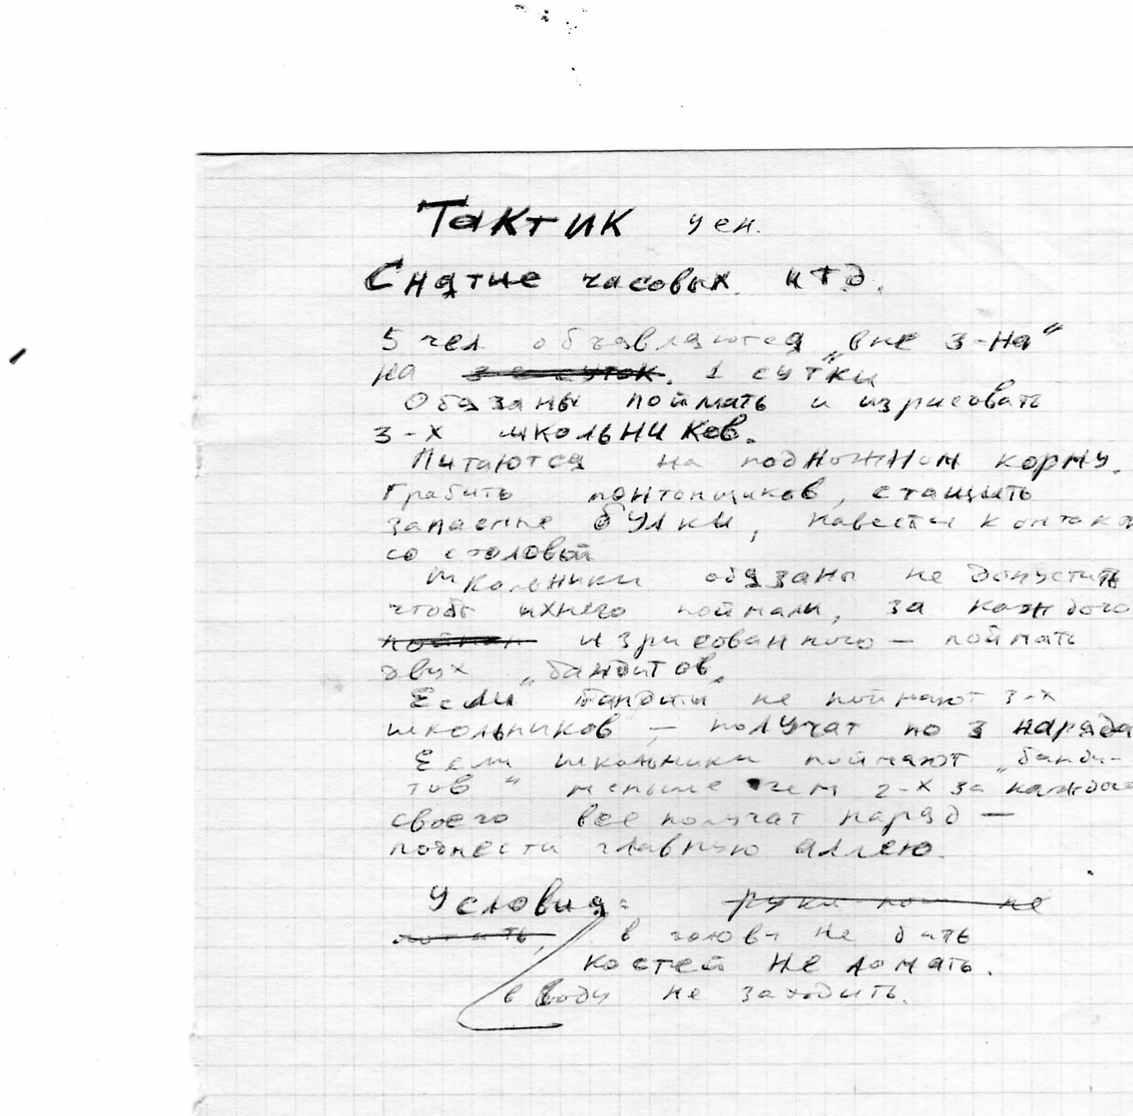 Тактик уен.
Снятие часовых итд.
5 чел объявляются „вне з-на“
на 3-е суток. 1 сутки
Обязаны поймать и изрисовать
3-х школьников.
Питаются на подножном корму.
грабить понтонщиков, стащить
запасные булки, навести контакт
со столовой
Школьники обязаны не допустить
чтобы ихнего поймали, за каждого
изрисованного — поймать
двух „бандитов„
Если бандиты не поймают 3-х
школьников — получат по 3 наряда
Если школьники поймают „банди-
тов“ меньше чем 2-х за каждого
своего все получат наряд —
подмести главную аллею.
Условия: руки ног не
ломать, в голову не бить
костей не ломать.
в воду не заходить.